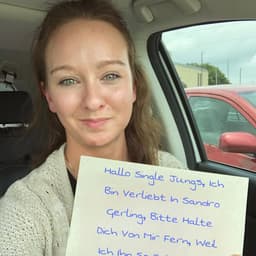 Hallo Single Jungs, Ich
Bin Verliebt In Sandro
Gerling, Bitte Halte
Dich Von Mir Fern, Weil
Ich Ihn So